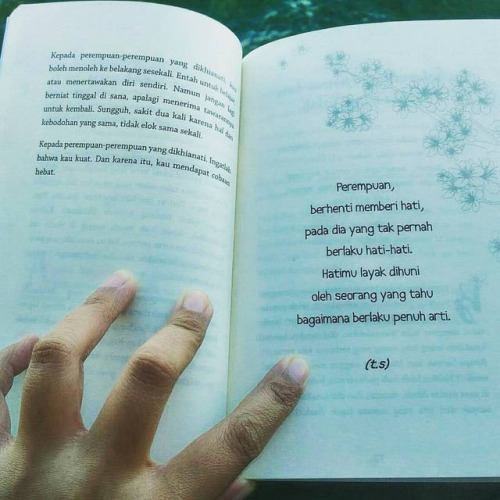 Kepada perempuan-perempuan yang dikhianati,
boleh menoleh ke belakang sesekali. Entah untuk belajar
atau menertawakan diri sendiri. Namun jangan lagi
berniat tinggal di sana, apalagi menerima tawarannya
untuk kembali. Sungguh, sakit dua kali karena hal dan
kebodohan yang sama, tidak elok sama sekali.
Kepada perempuan-perempuan yang dikhianati. Ingatlah
bahwa kau kuat. Dan karena itu, kau mendapat cobaan
hebat.
Perempuan,
berhenti memberi hati,
pada dia yang tak pernah
berlaku hati-hati.
Hatimu layak dihuni
oleh seorang yang tahu
bagaimana berlaku penuh arti.
(t.s)